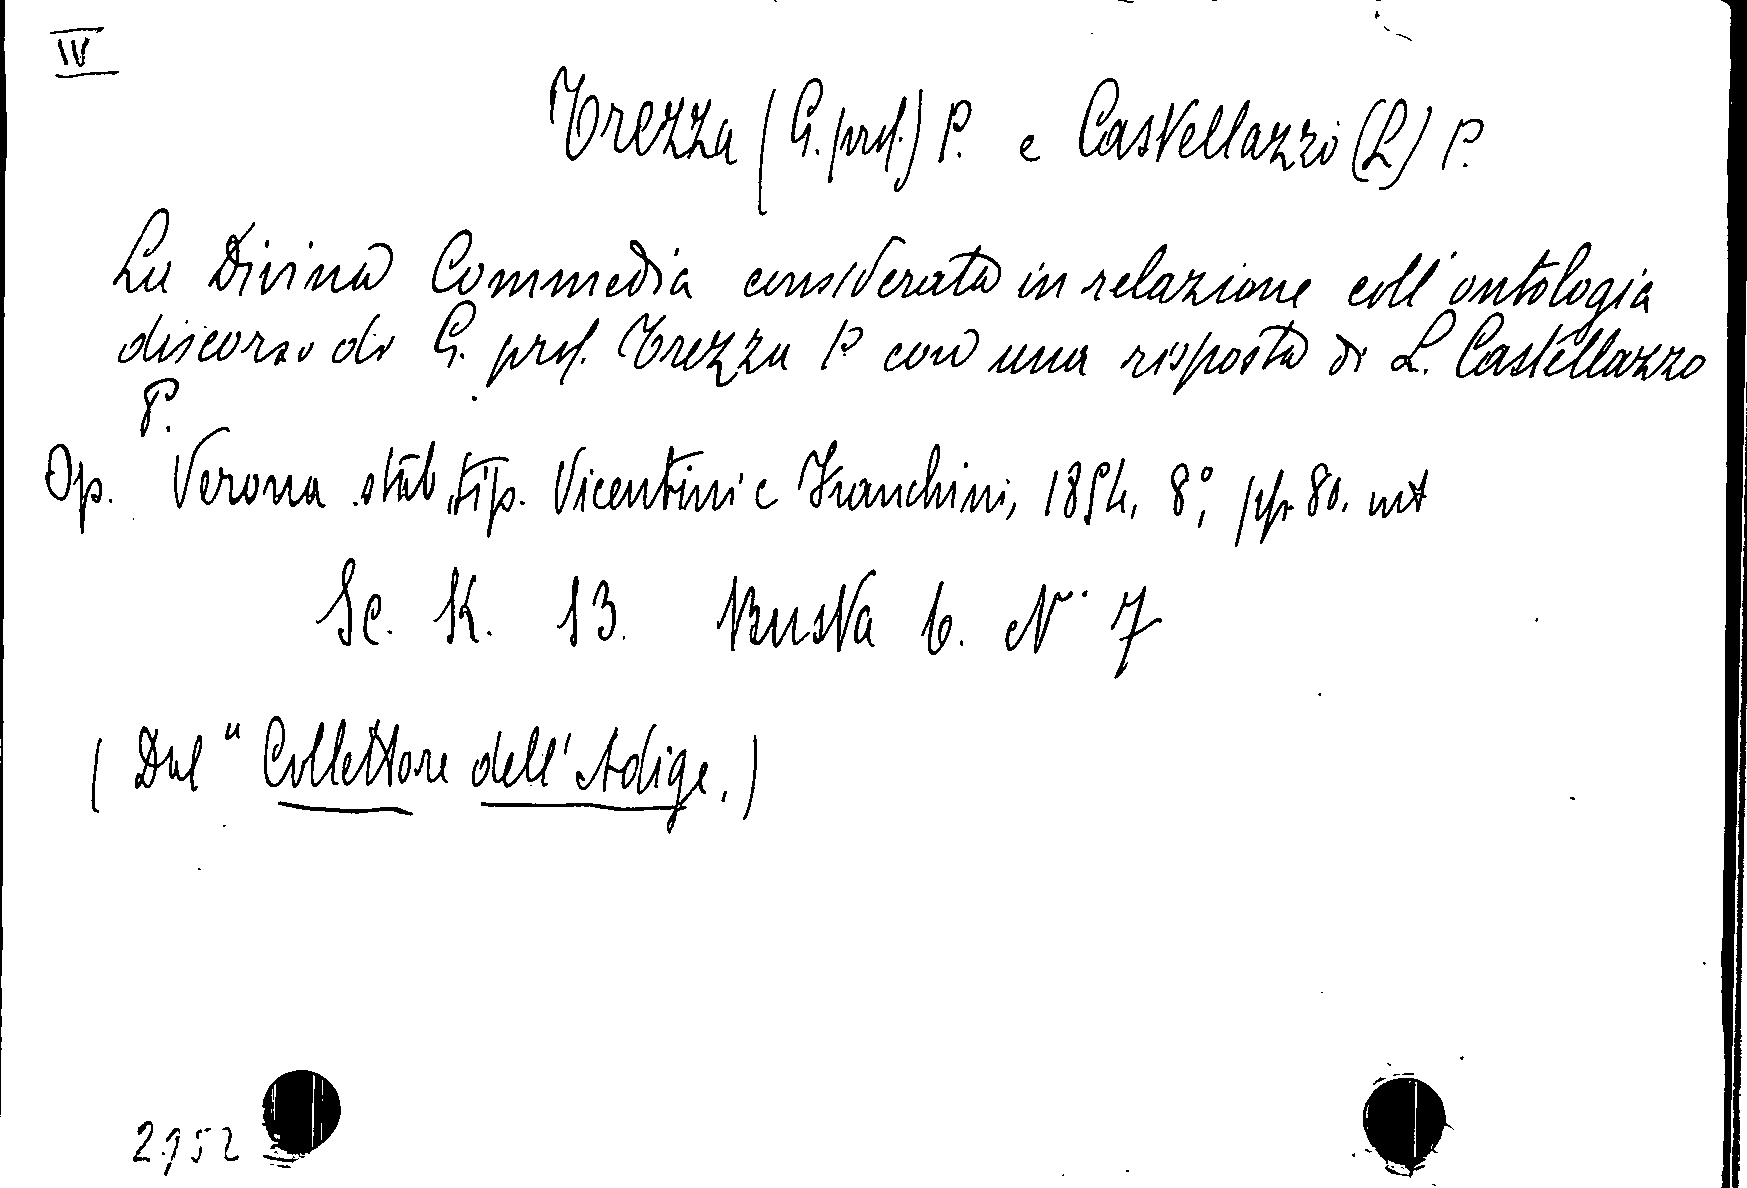 IV
Trezza (G. prof.) P. e Castellazzi (L) P.
La Divina Commedia considerata in relazione coll'ontologia
discorso di G. prof. Trezza P. con una risposta di L. Castellazzo
P.
Op. Verona stab. tip. Vicentini e Franchini, 1854, 8°, pp. 80.
Sc. K. 13. Busta 6. N. 7
(Dal "Collettore dell'Adige.)
2952